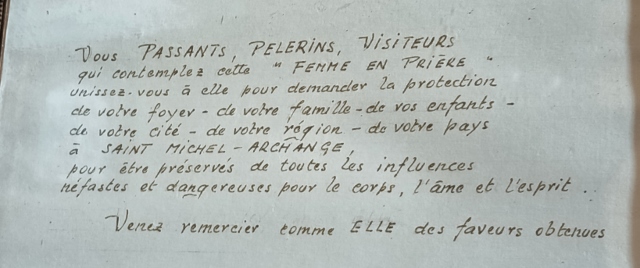 Vous PASSANTS, PELERINS, VISITEURS
qui contemplez cette "FEMME EN PRIÈRE"
unissez-vous à elle pour demander la protection
de votre foyer - de votre famille - de vos enfants -
de votre cité - de votre région - de votre pays
à SAINT MICHEL-ARCHANGE,
pour être préservés de toutes les influences
néfastes et dangereuses pour le corps, l'âme et l'esprit ..
Venez remercier comme ELLE des faveurs obtenues